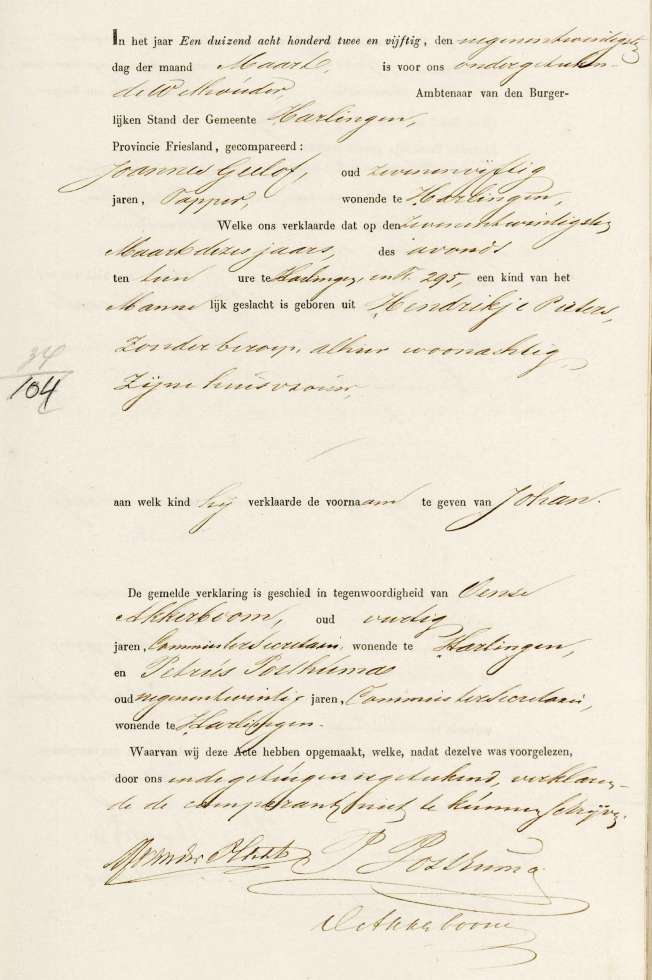 In het jaar Een duizend acht honderd twee en vijftig, den negenentwintigste
dag der maand Maart, is voor ons ondergeteken-
de Wethouder, Ambtenaar van den Burger-
lijken Stand der Gemeente Harlingen,
Provincie Friesland, gecompareerd:
Joannes Gulof, oud zevenenvijftig
jaren, Tapper, wonende te Harlingen,
Welke ons verklaarde dat op den zevenentwintigste
Maart dezes jaars, des avonds
ten tien ure te Harlingen, in No. 295, een kind van het
Manne lijk geslacht is geboren uit Hendrikje Pieters,
zonder beroep, alhier woonachtig,
zijne huisvrouw,
34
104
aan welk kind hij verklaarde de voornaam te geven van Johan.
De gemelde verklaring is geschied in tegenwoordigheid van Oense
Akkerboom, oud veertig
jaren, Commies ter Secretarie, wonende te Harlingen,
en Petrus Posthuma
oud negenentwintig jaren, Commies ter Secretarie,
wonende te Harlingen.
Waarvan wij deze Acte hebben opgemaakt, welke, nadat dezelve was voorgelezen,
door ons en de getuigen is geteekend, verklaren-
de de comparant niet te kunnen schrijven.
P Posthuma
O Akkerboom